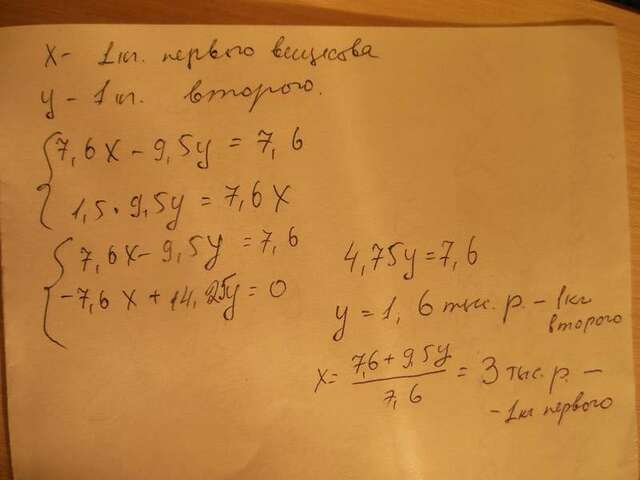 x - 1 кг. первого вещества
y - 1 кг. второго.
7,6x - 9,5y = 7,6
1,5 · 9,5y = 7,6x
7,6x - 9,5y = 7,6
-7,6x + 14,25y = 0
4,75y = 7,6
y = 1,6 тыс. р. - 1кг
второго
x = (7,6 + 9,5y)/7,6 = 3 тыс. р. -
- 1кг первого